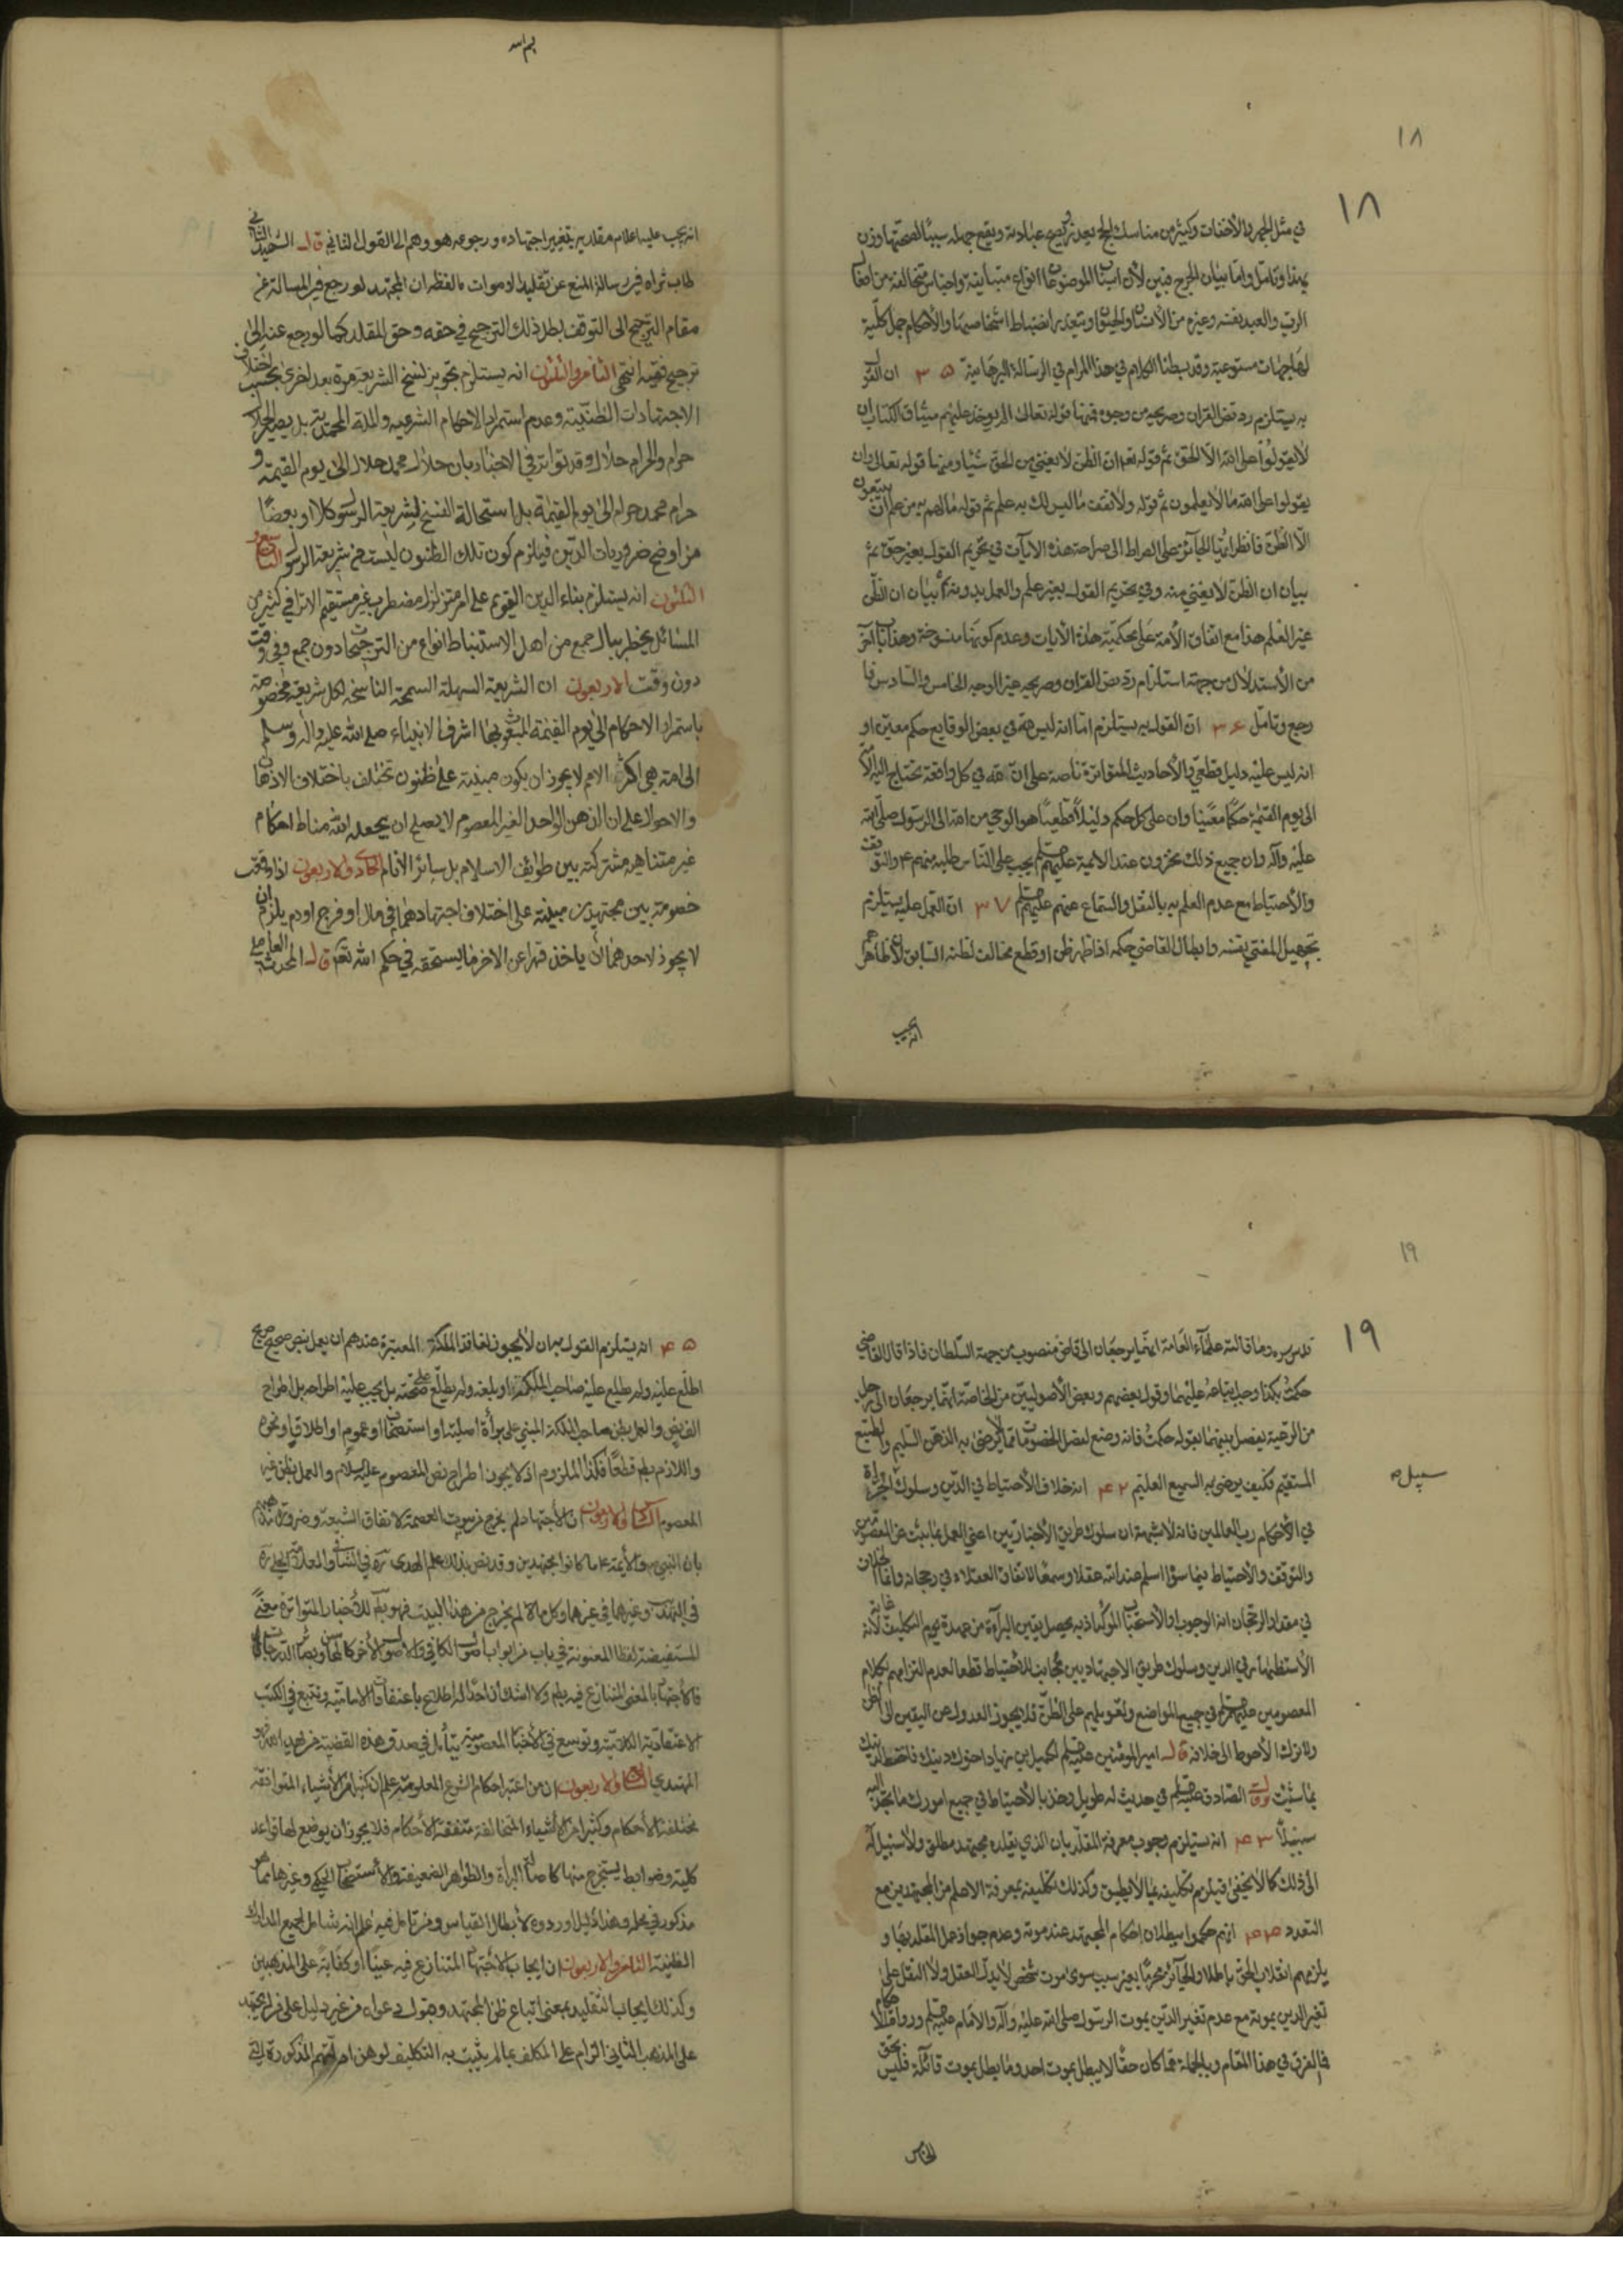 ١٨
١٨
في مثل الجهر والاخفات وكثير من مناسك الحج بعد عباداته ويقع جهله سببًا لصحتها وزن
بهذا وتامّل وامّا بيان الحرج فبين لأن الموضوعات انواع متباينة واجناس متخالفة من افعال
الربّ والعبد نفسه وغيره من الأناث والحيوان ويتعذر انضباط اشخاصها والأحكام جمل كليّة
لها جهات مستوعبة وقد بسطنا الكلام في هذا المرام في الرسالة البرهانية ٣٥ ان القول
به يستلزم رد نص القران وصريحه من وجوه فمنها قوله تعالى الم يوخذ عليهم ميثاق الكتاب ان
لا يقولوا على الله الّا الحقّ ثم قوله تعه ان الظنّ لا يغني من الحق شيئا ومنها قوله تعالى وان
يقولوا على الله ما لا يعلمون ثم قوله ولا تقف ما ليس لك به علم ثم قوله ما لهم به من علم ان يتبعون
الّا الظنّ فانظر ايها الجائز على الصراط الى صراحة هذه الايات في تحريم القول بغير حق ثم
بيان ان الظنّ لا يغني منه وفي تحريم القول بغير علم والعمل بدونه ثم بيان ان الظنّ
غير العلم هذا مع اتفاق الأمة على محكمية هذه الأيات وعدم كونها منسوخة وهذا باب اخر
من الأستدلال من جهة استلزام ردّ نص القران وصريحه غير الوجه الخامس والسادس فا
رجع وتامّل ٣٦ انّ القول به يستلزم امّا انه ليس لله في بعض الوقايع حكم معيّن او
انه ليس عليه دليل قطعيّ والأحاديث المتواترة ناصة على انّ لله في كل واقعة تحتاج اليه الأمّة
الى يوم القيمة حكمًا معيّنًا وان على كل حكم دليلًا قطعيًا هو الوحي من الله الى الرسول صلّى الله
عليه وآله وان جميع ذلك مخزون عند الائمة عليهم السلام يجب على النّاس طلبه منهم ٤ والتوقف
والأحتياط مع عدم العلم به بالنقل والسماع عنهم عليهم السلم ٣٧ انّ العمل عليه يستلزم
تجهيل المفتي نفسه وابطال القاضي حكمه اذا ظهر ظن او قطع مخالف لظنه السابق لأن ظاهر
انه يجب
انه يجب عليه اعلام مقلديه بتغيير اجتهاده ورجوعه هو وهم الى القول الثاني قال الشهيد الثاني
طاب ثراه في رسالة المنع عن تقليد الاموات ما لفظه ان المجتهد لو رجع في المسالة عن
مقام الترجيح الى التوقف بطل ذلك الترجيح في حقه وحق المقلد كما لو رجع عنه الى
ترجيح نقيضه انتهى الثامن والثلثون انه يستلزم تجويز نسخ الشريعة مرة بعد اخرى بحسب اختلاف
الاجتهادات الظنّية وعدم استمرار الاحكام الشرعيه والملة المحمدية بل يصير الحلال
حرام والحرام حلال وقد تواتر في الاخبار بان حلال محمد حلال الى يوم القيمة و
حرام محمد حرام الى يوم القيمة بل استحالة النسخ لشريعة الرسول كلا او بعضًا
من اوضح ضروريات الدين فيلزم كون تلك الظنون ليست من شريعة الرسول التاسع و
الثلثون انه يستلزم بناء الدين القويم على امر متزلزل مضطرب غير مستقيم الا ترا في كثير من
المسائل يخطر ببال جمع من اهل الاستنباط انواع من الترجيحات دون جمع وفي وقت
دون وقت الاربعون ان الشريعة السهلة السمحة الناسخة لكل شريعة مخصوصة
باستمرار الاحكام الى يوم القيمة المبعوث بها اشرف الانبياء صلى الله عليه واله وسلم
الى امة هي اكثر الامم لا يجوز ان يكون مبنية على ظنون تختلف باختلاف الاذهان
والاحوال على ان الذهن الواحد الغير المعصوم لا يصلح ان يجعله الله مناط احكام
غير متناهية مشتركة بين طوايف الاسلام بل سائر الانام الحادي والاربعون اذا وقعت
خصومة بين مجتهدين مبنية على اختلاف اجتهادهما في مال او فرج او دم يلزم ان
لا يجوز لاحدهما ان ياخذ قهرا عن الاخر ما يستحقه في حكم الله تعه قال المحدث العاملي
١٩
١٩
قدس سره وما قالته علماء العامة انهما يرجعان الى قاض منصوب من جهة السّلطان فاذا قال القاضي
حكمتُ بكذا وجب اتباعه عليهما وقول بعضهم وبعض الأصوليين من الخاصّة انّهما يرجعان الى رجل
من الرعية يفصل بينهما بقوله حكمتُ فانه وضع لفصل الخصومات ممّا لا يرضى به الذهن السليم والطبع
المستقيم فكيف يرضى به السميع العليم ٤٢ انه خلاف الأحتياط في الدين وسلوك الجرأة
في الأحكام رب العالمين فانه لا شبهة ان سلوك طريق الأخباريين اعني العمل بما ثبت عن المعصومين
والتوقف والأحتياط فيما سواه اسلم عند الله عقلا وسمعًا لاتفاق العقلاء في رجحانه وانما الخلاف
في مقدار الرجحان انه الوجوب او الأستحباب المؤكد اذ به يحصل يقين البرآة من عهدة يوم التكليف لأنه غاية
الأستظهار في الدين وسلوك طريق الاجتهاديين مجانب للأحتياط قطعا لعدم التزامهم بكلام
المعصومين عليهم السلم في جميع المواضع وتعويلهم على الظنّ فلا يجوز العدول عن اليقين الى الظن
ولا ترك الأحوط الى خلافه قال امير المؤمنين عليه السلم لكميل بن زياد اخوك دينك فاحتط لدينك
بما شئت وقال الصّادق عليه السلم في حديث له طويل وخذ بالأحتياط في جميع امورك ما تجد اليه
سبيلًا ٤٣ انه يستلزم وجوب معرفة المقلّد بان الذي يقلده مجتهد مطلق ولا سبيل له
الى ذلك كما لا يخفى فيلزم تكليفه بما لا يطيق وكذلك تكليفه بمعرفة الاعلم من المجتهدين مع
التعدد ٤٤ انهم حكموا ببطلان احكام المجتهد عند موته وعدم جواز عمل المقلد بها و
يلزمهم انقلاب الحق باطلا والجائز محرّمًا بغير سبب سوى موت شخص لا يدلّ العقل ولا النقل على
تغير الدين بموته مع عدم تغير الدّين بموت الرسول صلى الله عليه وآله والامام عليه السلم
فالفرق في هذا المقام وبالجملة فما كان حقًا لا يبطل بموت احد وما يبطل بموت قائله فليس بحق
الخامس
٤٥ انه يستلزم القول به ان لا يجوز لفاقد الملكة المعتبرة عندهم ان يعمل بنص صحيح صريح
اطلع عليه ولم يطلع عليه صاحب الملكة او بلغه ولم يطلع على صحته بل يجب عليه اطراحه بل اطراح
النص والعمل بظن صاحب الملكة المبني على برأة اصلية او استصحاب او عموم او اطلاق او نحوه
واللازم بط قطعًا فكذا الملزوم اذ لا يجوز اطراح نص المعصوم عليه السلام والعمل بظن غير
المعصوم السادس والاربعون ان الأجتهاد لم يخرج من بيت العصمة لاتفاق الشيعة وضرورة مذهبهم
بان النبي ص والأيمة ع ما كانوا مجتهدين وقد نص بذلك علم الهدى ره في الشافي والعلامة الحلي ره
في التهذيب وغيرهما في غيرهما وكل ما لم يخرج من هذا البيت فهو بط للأخبار المتواترة معنًى
المستفيضة لفظا المعنونة في باب من ابواب اصول الكافي
فالأجتهاد بالمعنى المتنازع فيه بط ولا اشك ان احدًا له اطلاع باعتقادات الامامية وتتبع في الكتب
الاعتقادية الكلامية وتوسع في الأخبار المعصومية يتأمل في صدق هذه القضية
المهتدي السابع والاربعون ان من اعتبر احكام الشرع المعلومة علم ان كثيرا من الأشياء المتوافقة
مختلفة الأحكام وكثيرا من الأشياء المتخالفة متفقة الأحكام فلا يجوز ان يوضع لها قواعد
كلية وضوابط يستخرج منها كاصالة البرأة والظواهر الضعيفة والأستصحاب الحكمي وغيرها مما هو
مذكور في محله وهذا دليل اوردوه لأبطال القياس ومن تامل فيه علم انه شامل لجميع المدارك
الظنية الثامن والاربعون ان ايجاب الأجتهاد المتنازع فيه عينًا او كفاية على المذهبين
وكذلك ايجاب التقليد بمعنى اتباع ظن المجتهد وقبول دعواه من غير دليل على من لم يجتهد
على المذهب الثاني الزام على المكلف بما لم يثبت به التكليف لوهن ادلتهم المذكورة في